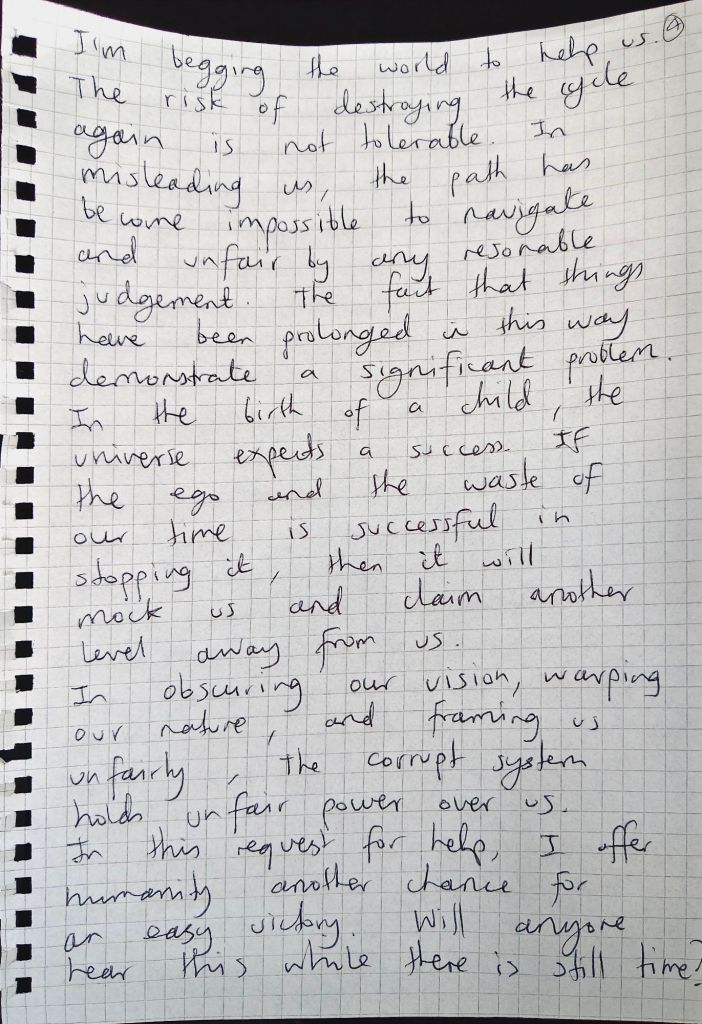 I'm begging the world to help us. 4
The risk of destroying the cycle
again is not tolerable. In
misleading us, the path has
become impossible to navigate
and unfair by any resonable
judgement. The fact that things
have been prolonged in this way
demonstrate a significant problem.
In the birth of a child, the
universe expects a success. If
the ego and the waste of
our time is successful in
stopping it, then it will
mock us and claim another
level away from us.
In obscuring our vision, warping
our nature, and framing us
unfairly, the corrupt system
holds unfair power over us.
In this request for help, I offer
humanity another chance for
an easy victory. Will anyone
hear this while there is still time?